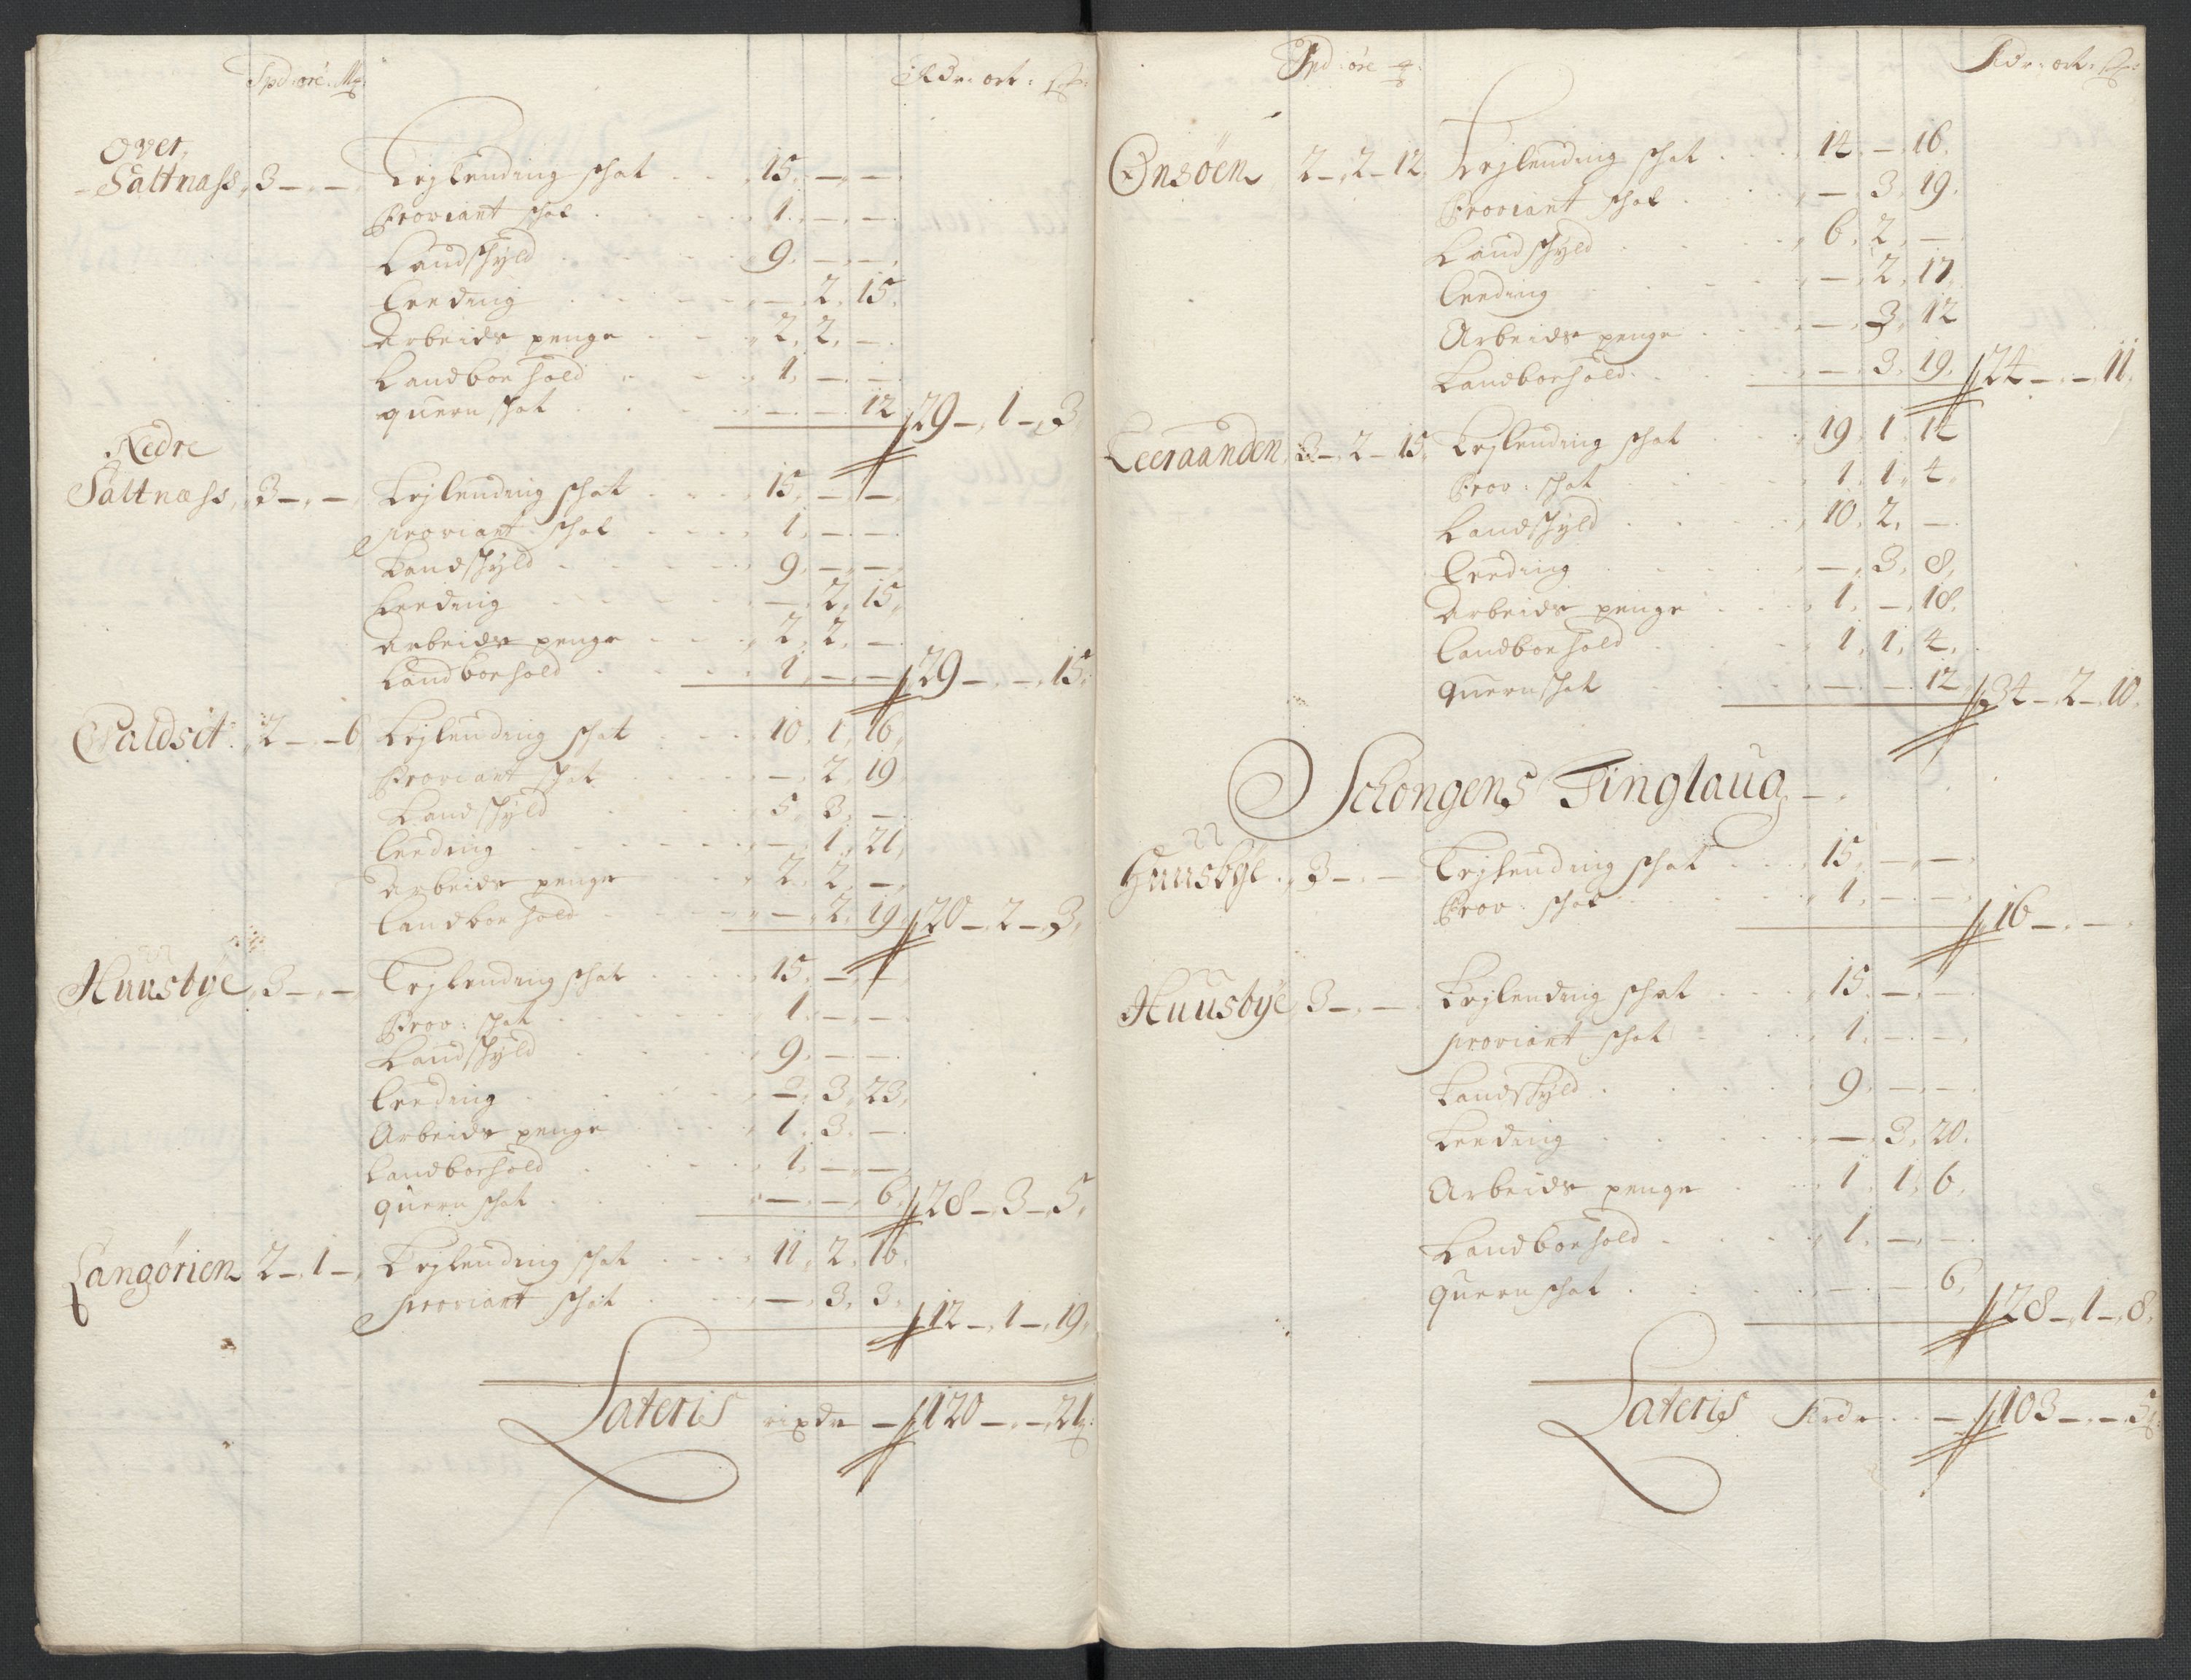 Spd: øre: Mk: Rdr: ort: ß:
Over
Saltnass, 3 - , - Lejlending schat 15. - . -
Proviant schat 1. - . -
Landschÿld 9. - . -
Leeding - . 2. 15.
Arbeids penge 2. 2. -
Landboehold 1. - . -
quern schat - . - . 12 29 - 1 - 3
Nedre
Saltnæss, 3 - , - Lejlending schat 15. - . -
proviant schat 1. - . -
Landschÿld 9. - . -
Leeding - . 2. 15.
Arbeids penge 2. 2. -
Landboehold 1. - . - 29 - . - 15.
Saldsit 2 - . - 6 Lejlending schat 10. 1. 16.
Proviant schat - . 2. 19
Landschÿld 5. 3. -
Leeding - . 1. 21.
Arbeids penge 2. 2. -
Landboehold - . 2. 19. 20 - 2 - 3.
Huusbye, 3 - , - Lejlending schat 15. - . -
Prov: schat 1. - . -
Landschÿld 9. - . -
Leeding - . 3. 23.
Arbeids penge 1. 3. -
Landboehold 1. - . -
quern schat - . - . 6. 28 - 3 - 5.
Langørien 2 - 1 - Lejlending schat 11. 2. 16.
proviant schat - . 3. 3. 12 - 1 - 19.
Lateris rixdr - 120 - . - 21ß:
Spd: øre ß: Rdr: ort: ß:
Onsöen 2 - 2 - 12. Lejlending schat 14. - . 16.
Proviant schat - . 3. 19.
Landschÿld 6. 2. -
Leeding - . 2. 17.
Arbeids penge - . 3. 12
Landboehold - . 3. 19. 24 - . - 11.
Leeraanden 3 - 2 - 15. Lejlending schat 19. 1. 14
Prov: schat 1. 1. 4.
Landschÿld 10. 2. -
Leeding - . 3. 8.
Arbeids penge 1. - . 18.
Landboehold 1. 1. 4.
quern schat - . - . 12. 34 - 2 - 10.
Schongens Tinglaug
Huusbÿe 3 - . - Lejlending schat 15. - . -
Prov: schat 1. - . - 16 - . -
Huusbÿe 3 - . - Lejlending schat 15. - . -
proviant schat 1. - . -
Landschÿld 9. - . -
Leeding - . 3. 20.
Arbeids penge 1. 1. 6.
Landboehold 1. - . -
quern schat - . - . 6. 28 - 1 - 8.
Lateris Rdr - 103 - . - 5ß: